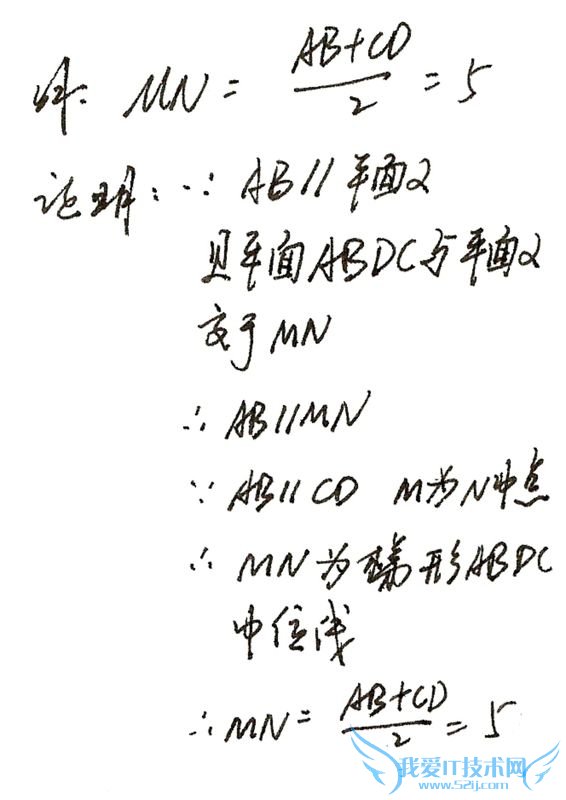 解: MN = (AB+CD)/2 = 5
说明: ∵ AB // 平面α
且平面ABDC与平面α
交于MN
∴ AB//MN
∵ AB//CD M为N中点
∴ MN为梯形ABDC
中位线
∴ MN = (AB+CD)/2 = 5
我爱IT技术网
www.52ij.com